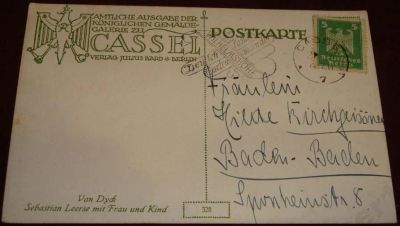 AMTLICHE AUSGABE DER
KÖNIGLICHEN GEMÄLDE-
GALERIE ZU
CASSEL
VERLAG JULIUS BARD • BERLIN
POSTKARTE
5 5
Deutsches
Reich
Fräulein
Hilde Kirchgeisner
Baden-Baden
Sponheimstr 8
Van Dyck
Sebastian Leerse mit Frau und Kind
328